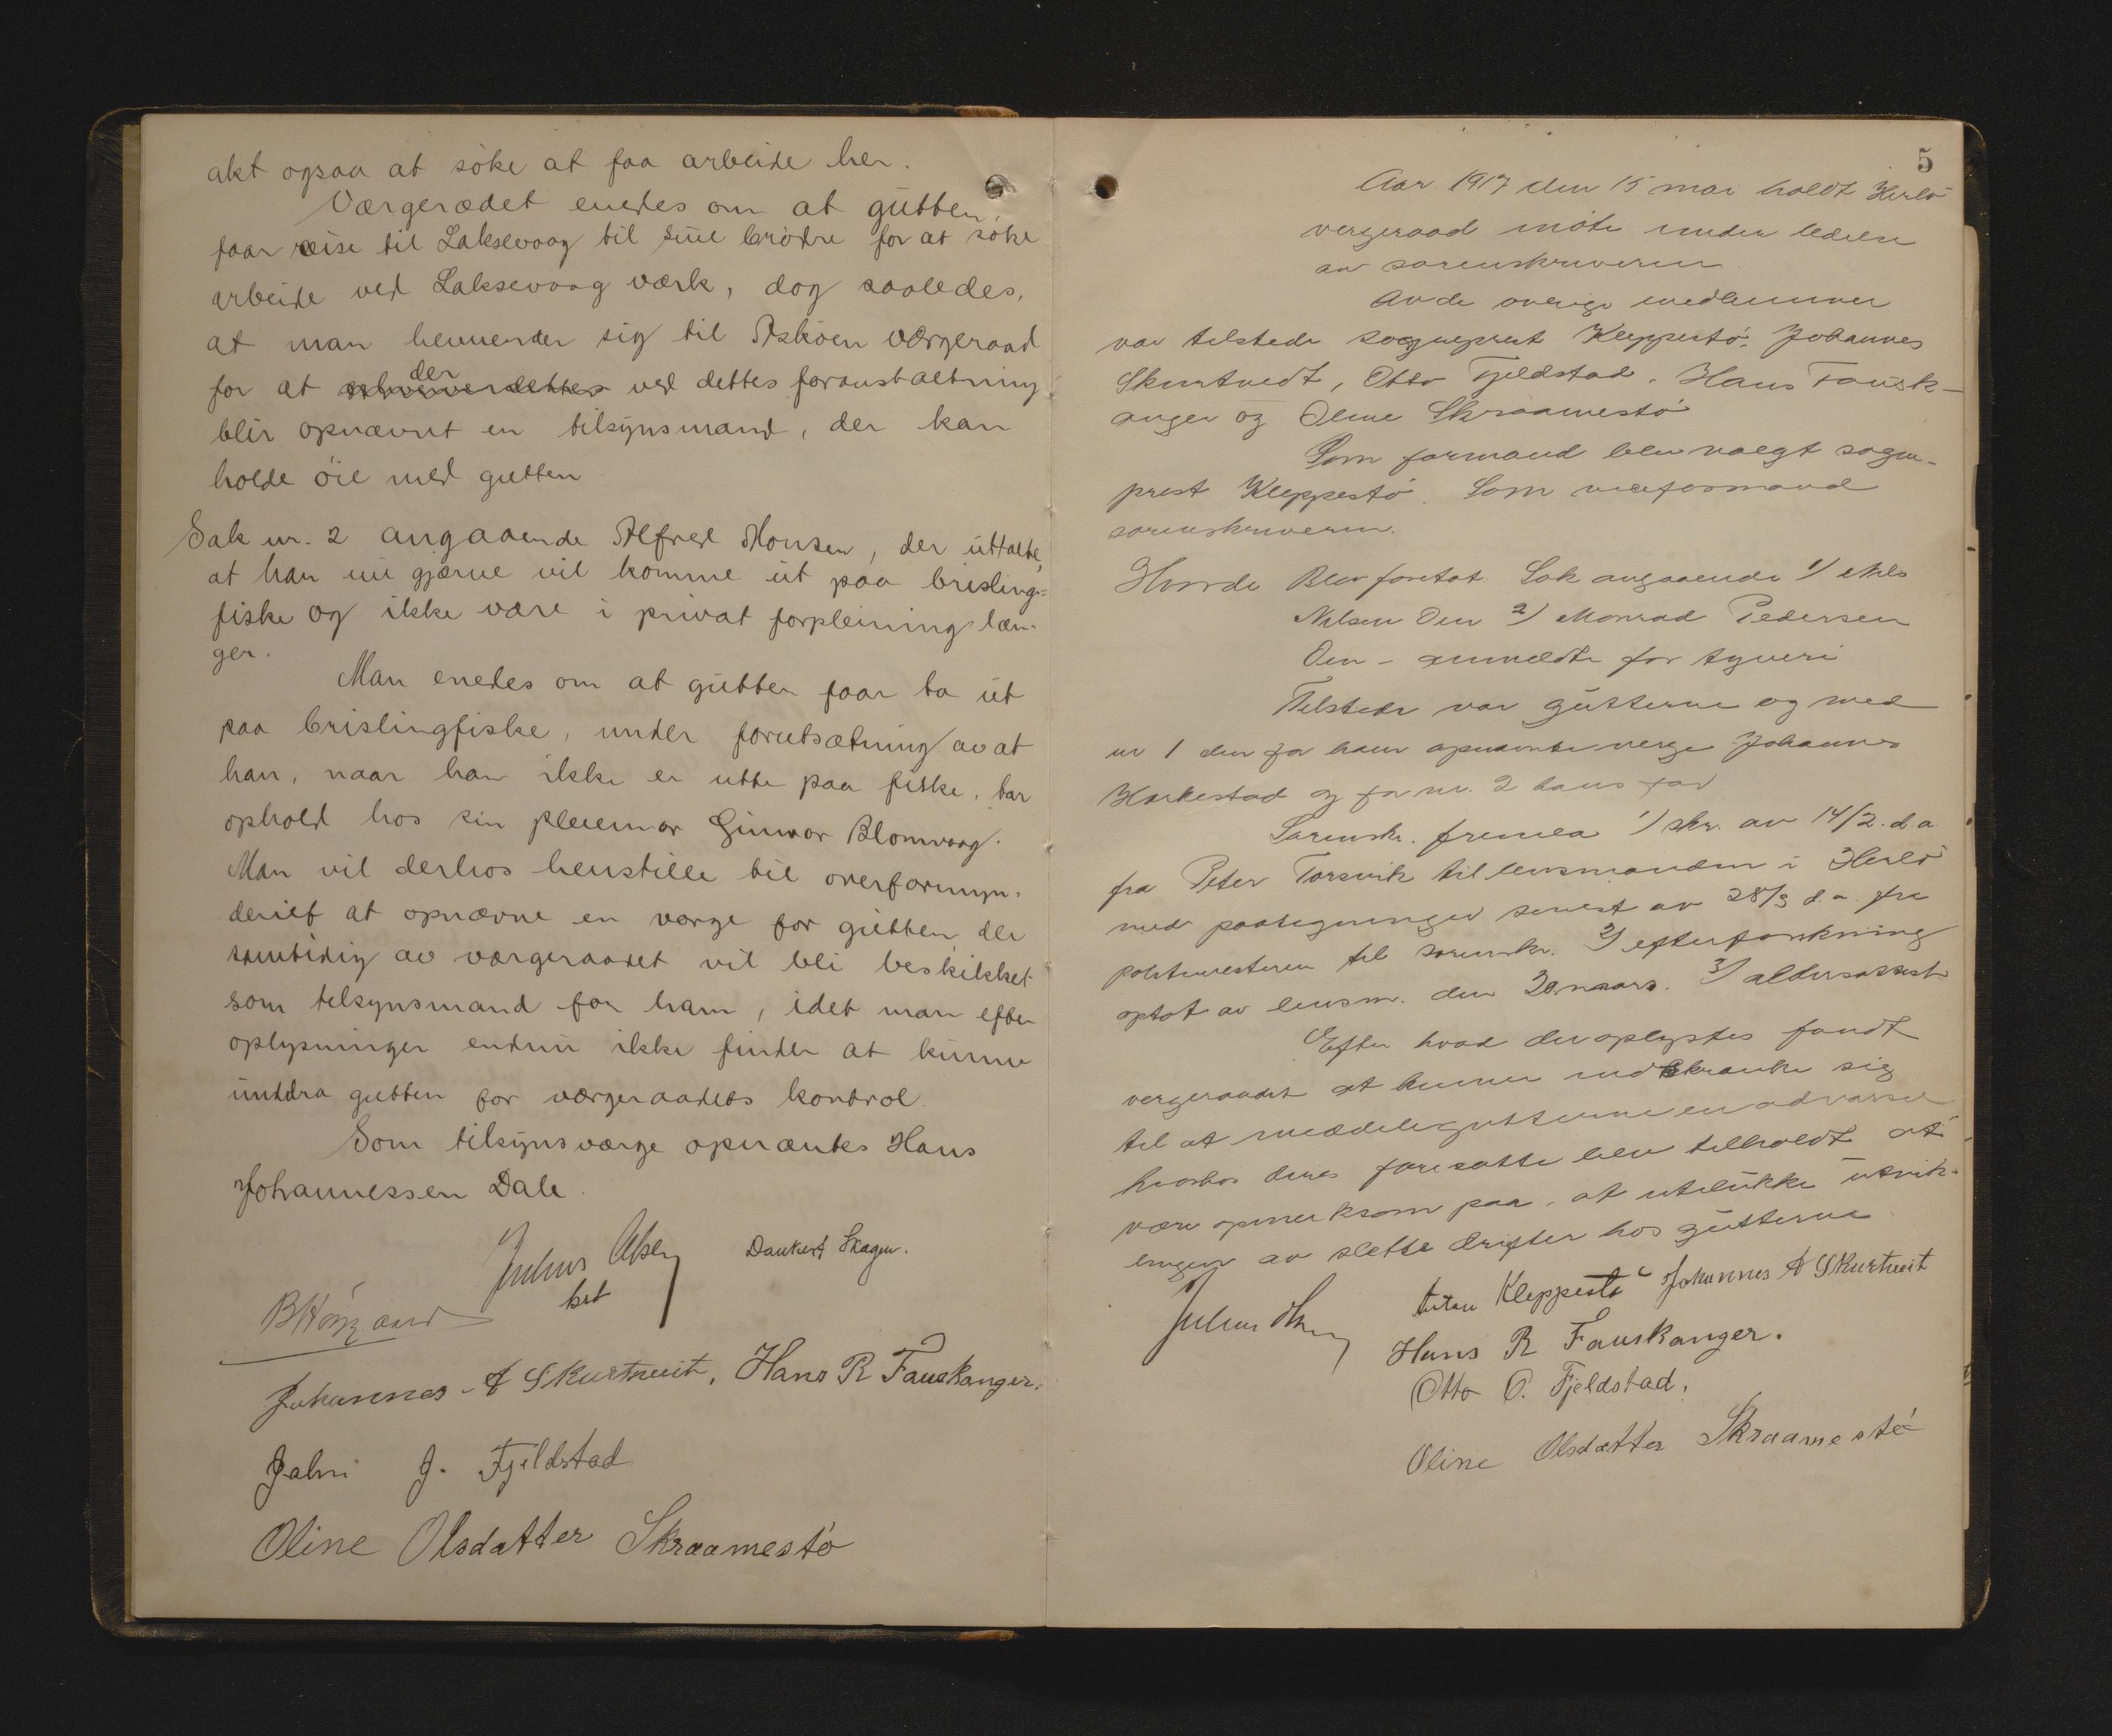 akt ogsaa at söke at faa arbeide her.
Værgerådet enedes om at gutten
faar reise til Laksevaag til sine brödre for at söke
arbeide ved Laksevaag værk, dog saaledes,
at man henvender sig til Askøen værgeraad
der
for at ved dettes foranstaltning
blir opnævnt en tilsynsmand, der kan
holde öie med gutten
Sak nr. 2 angaaende Alfred Monsen, der uttalte,
at han nu gjærne vil komme ut paa brisling-
fiske og ikke være i privat forpleining læn-
ger.
Man enedes om at gutten faar ta ut
paa brislingfiske, under forutsætning av at
han, naar han ikke er ute paa fiske, tar
ophold hos sin pleiemor Gunvor Blomvaag.
Man vil derhos henstille til overformyn-
deriet at opnævne en værge for gutten, der
samtidig av værgeraadet vil bli beskikket
som tilsynsmand for ham, idet man efter
oplysninger endnu ikke finder at kunne
unddra gutten for værgeraadets kontrol.
Som tilsynsværge opnævntes Hans
Johannessen Dale.
Julius Olsen Dankert Skagen.
Johannes A Skurtveit, Hans R Fauskanger.
J. Fjeldstad
Oline Olsdatter Skraamestö
5
Aar 1917 den 15 mai holdt Herlö
vergeraad möte under ledelse
av sorenskriveren
Av de övrige medlemmer
var tilstede sogneprest Kleppestö, Johannes
Skurtvedt, Otto Fjeldstad, Hans Fausk-
anger og Oline Skraamestö
Som formand blev valgt sogne-
prest Kleppestö. Som viceformand
sorenskriveren.
Hvorde Blev foretat Sak angaaende 1/ Nils
Nilsen Oen 2/ Monrad Pedersen
Oen - anmeldte for tyveri
Tilstede var gutterne og med
nr 1 den for ham opnævnte verge Johannes
Horkestad og for nr. 2 hans far
Sorenskr. fremla 1/ skr. av 14/2. d.a.
fra Peter Torsvik til lensmanden i Herlö
med paategninger senest av 28/3 d.a. fra
politimesteren til sorenskr. 2/ efterforskning
optat av lensm. den 20 mars. 3/ aldersattest
Efter hvad der oplystes fandt
vergeraadet at kunne indskrænke sig
til at meddele gutterne en advarsel
hvorhos deres foresatte blev tilholdt at
være opmerksom paa, at utelukke utvik-
lingen av slette drifter hos gutterne
Julius Olsen Anton Kleppestö Johannes A Skurtveit
Hans R Fauskanger.
Otto O. Fjeldstad.
Oline Olsdatter Skraamestö